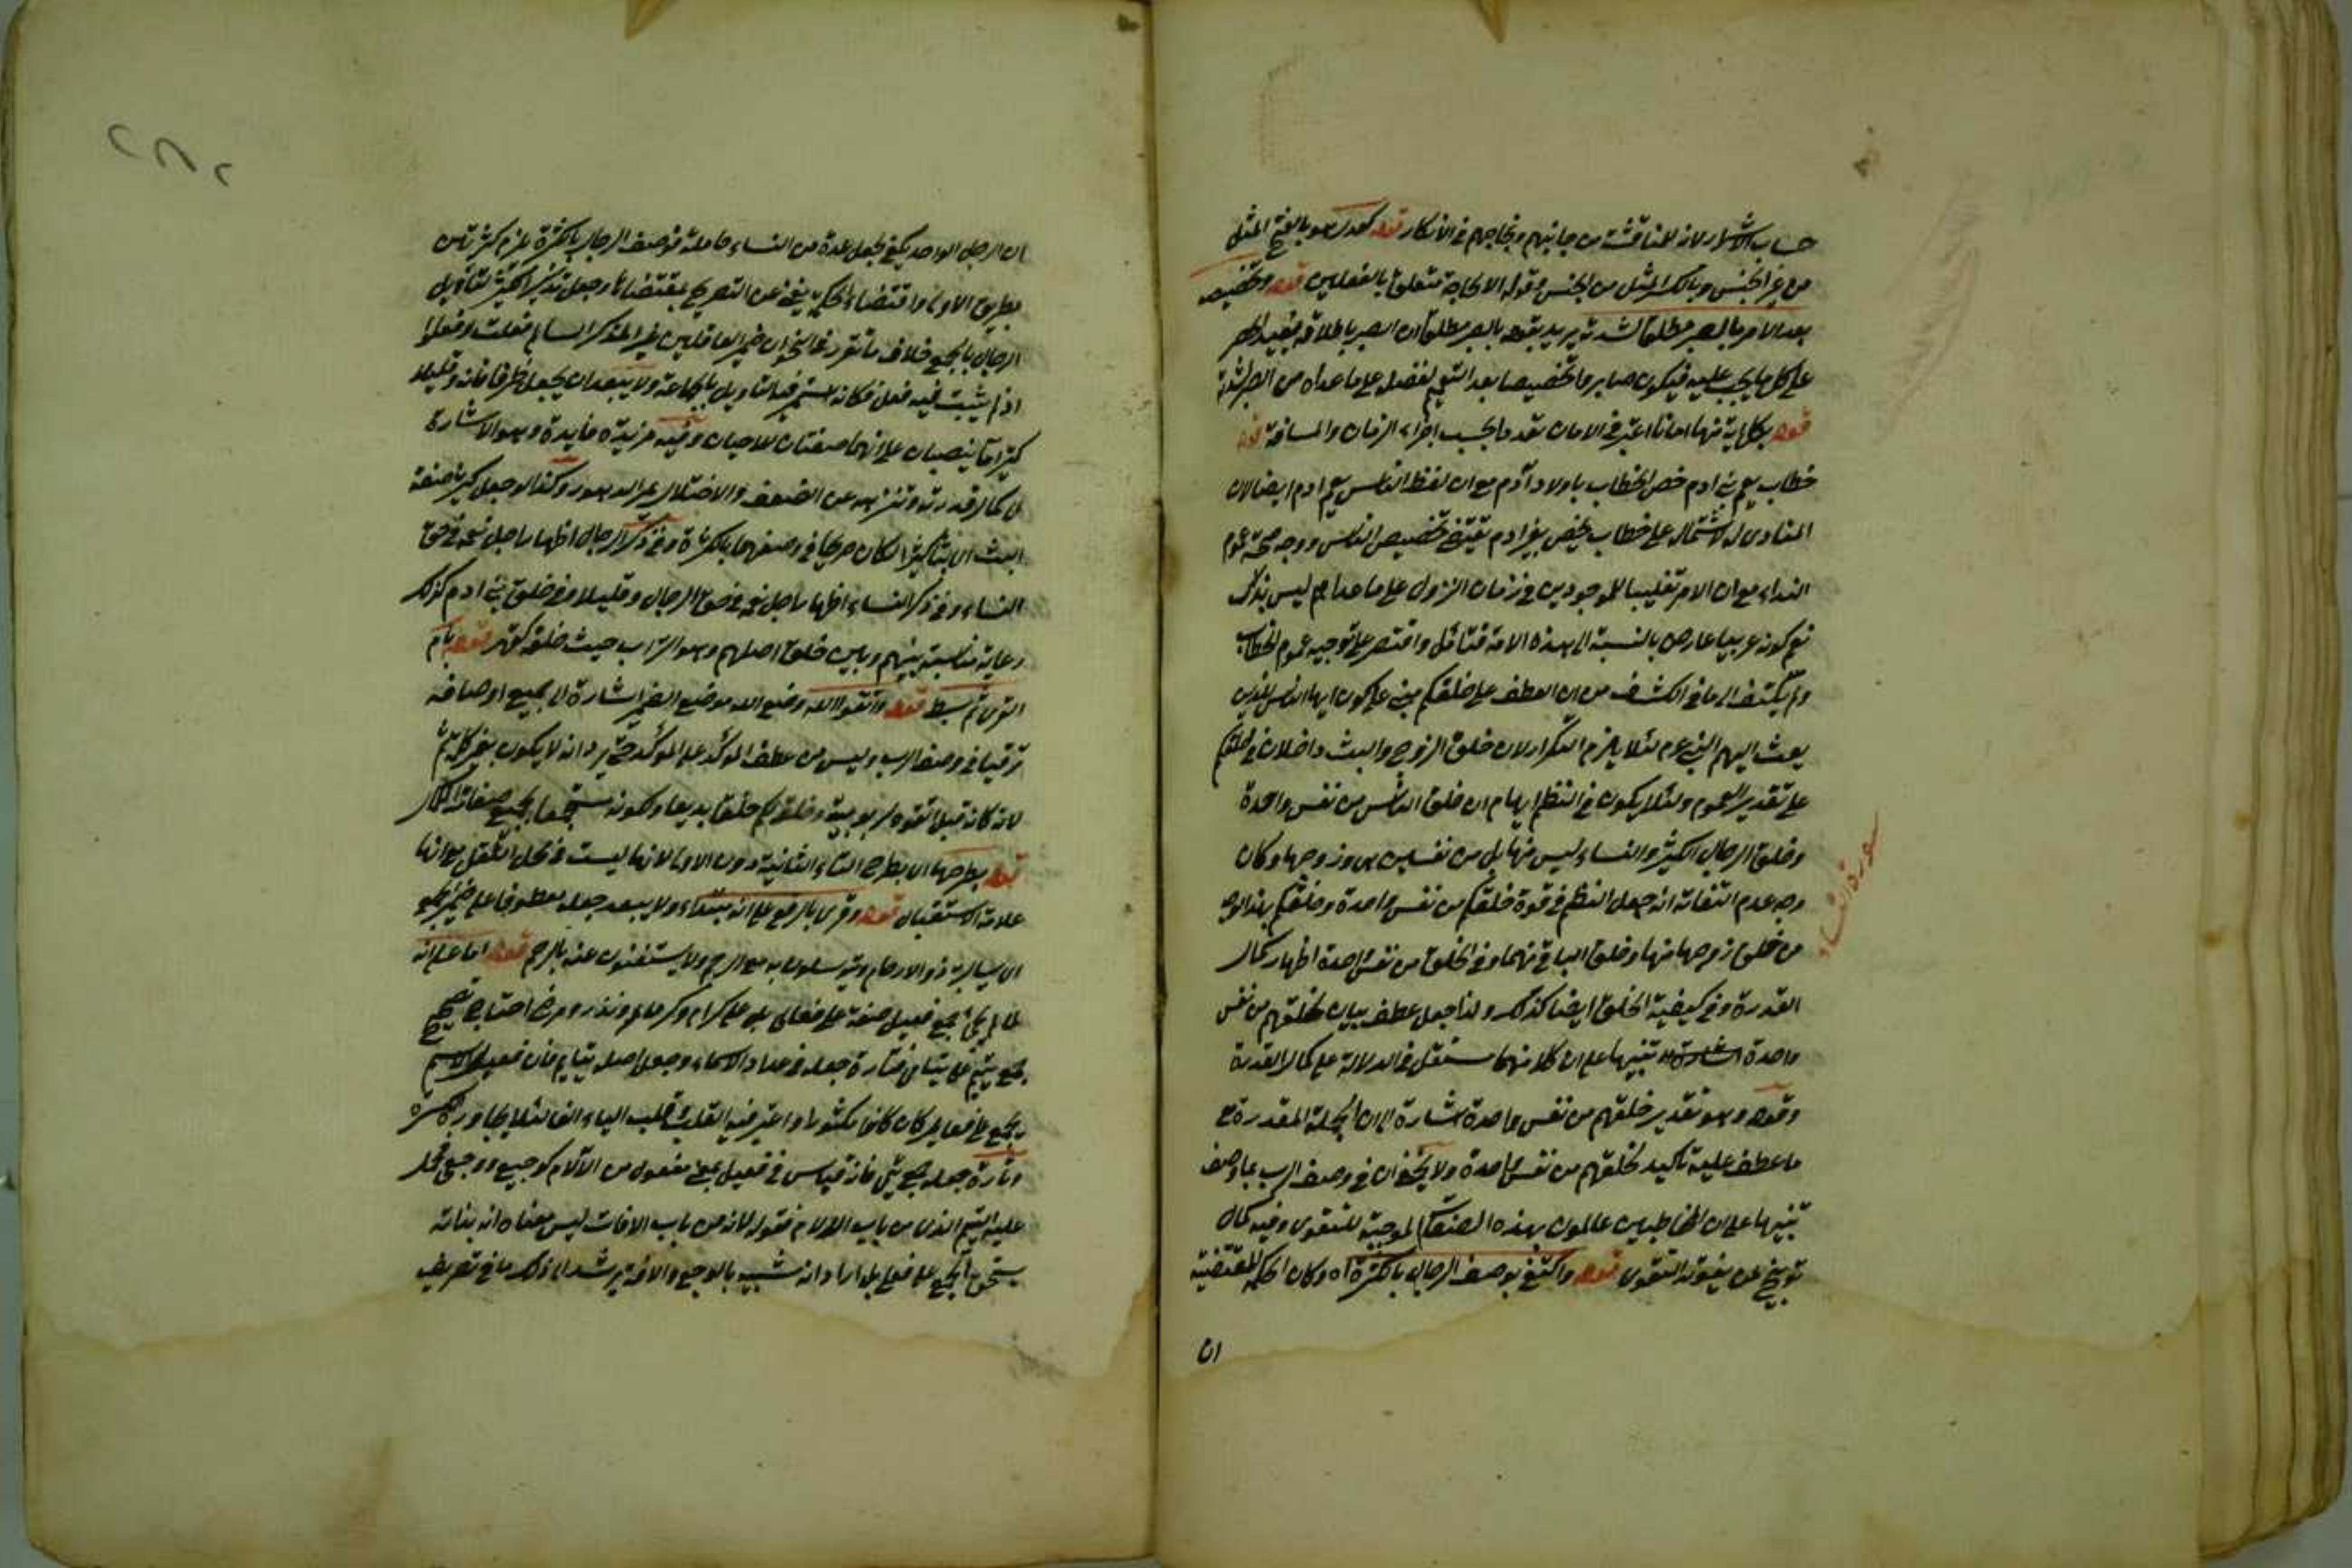 حساب الاشرار لانه للمناقشة من جانبهم وتحاجهم في الانكار قوله كعدل هو بالفتح المثل
من غير الجنس وبالكسر المثل من الجنس وقوله الا لحاجة متعلق بالفعلين قوله وتخصيصه
بعد الامر بالصبر مطلقا لشدته يريد بقوله بالصبر مطلقا ان الصبر باطلاقه يفيد الصبر
على كل ما يجب عليه فيكون صابروا تخصيصا بعد التعميم لفضله على ما عداه من الصبر لشدته
قوله بكل اية منها امانا اعتبر في الامان تعددا بحسب اجزاء الزمان والمسافة قوله
خطاب يعم بني ادم خص الخطاب باولاد آدم مع ان لفظ الناس يعم ادم ايضا لان
المنادى له لاشتماله على خطاب يخص بغير ادم يقتضي تخصيص الناس ووجه صحة عموم
النداء مع ان الامر تغليبا للموجودين في زمان النزول على ما عداهم ليس بذلك
نعم كونه عربيا عارض بالنسبة الى هذه الامة فتأمل واقتصر على توجيه عموم الخطاب
ولم يلتفت الى ما في الكشاف من ان العطف على خلقكم مبني على كون ايها الناس للذين
بعث اليهم النبي عم لئلا يلزم التكرار لان خلق الزوج والبث داخلان في خلقكم
على تقدير العموم ولئلا يكون في النظم ايهام ان خلق الناس من نفس واحدة
وخلق الرجال الكثير والنساء ليس منها بل من نفسين هي وزوجها وكان
وجه عدم التفاته انه جعل النظم في قوة خلقكم من نفس واحدة وخلقكم بهذا الوجه
من خلق زوجها منها وخلق الباقي منهما وفي الخلق من نفس واحدة اظهار كمال
القدرة وفي كيفية الخلق ايضا كذلك ولذا جعل عطف بيان لخلقهم من نفس
واحدة تنبيها على ان كلا منهما مستقل في الدلالة على كمال القدرة
وقوله وهو تقدير خلقهم من نفس واحدة اشارة الى ان الجملة المقدرة مع
ما عطف عليه تاكيد لخلقهم من نفس واحدة ولا يخفى ان في وصف الرب بما وصف
تنبيها على ان المخاطبين عالمون بهذه الصفة الموجبة للتقوى وفيه كمال
توبيخ لمن يفوته التقوى قوله واكتفى بوصف الرجال بالكثرة اه وكان الحكمة المقتضية
ان
سورة النساء
ان الرجل الواحد يكفي لجعل عدة من النساء حاملة فوصف الرجال بالكثرة يلزم كثرتهن
بطريق الاولى واقتضاء الحكمة يغني عن التصريح بمقتضاها وجعل تذكير الكثير لتاويل
الرجال بالجمع خلاف ما تقرر في النحو ان ضمير العاقلين غير المذكر السالم فعلت وفعلوا
اذ لم يثبت فيه فعل فكانه لم يستمر فيه التاويل بالجماعة ولا يبعد ان يجعل ظرفا فانه وقليلا
كثيرا ما ينصبان على انهما صفتان للاحيان وفيه مزيد فايدة وهو الاشارة
الى كمال قدرته وتنزهه عن الضعف والاختلال بمر الدهور وكذا لو جعل كثيرا صفة
البث اي بثا كثيرا لكان صريحا في وصفهما بالكثرة وفي ذكر الرجال اظهار اجل نعمه في حق
النساء وفي ذكر النساء اظهار اجل نعمه في حق الرجال وقليلا وفي خلق بني ادم كذلك
رعاية مناسبة بينهم وبين خلق اصلهم وهو التراب حيث خلقه قوله بأم
قوله واتقوا الله وضع الله موضع الضمير اشارة الى جميع اوصافه
ترقيا في وصف الرب وليس من عطف المؤكد على المؤكد حتى يرد انه لا يكون بغير كلمة ثم
لانه كانه قيل اتقوه لربوبيته وخلقكم خلقا بديعا ولكونه مستجمعا لجميع صفات الكمال
قوله بطرحها اي بطرح التاء الثانية دون الاولى لانها ليست في محل الثقل مع انها
علامة الاستقبال قوله وقرئ بالرفع على انه مبتداء ولا يبعد جعله معطوفا على ضمير الجمع
اي يسال به ذوو الارحام ويتوسلون به مع الرحم ولا يستغنون عنه بالرحم قوله اما على انه
لما لم يجئ جمع فعيل صفة على فعالى بل على كرام وكرماء ونذر ومرضى احتاج تصحيح
جمع يتيم على يتامى فتارة جعله في عداد الاسماء وجعل اصله يتايم فان فعيلا الاسم
يجمع على فعايل واعتبر فيه القلب فقلب الياء الفا
وتارة جعله جمع يتمى فانه قياس في فعيل بمعنى مفعول من الآلام كوجيع ووجعى فحمل
عليه اليتيم الذي من باب الآلام فقوله لانه من باب الافات ليس معناه انه بذاته
يستحق الجمع على فعلى بل اراد انه شبيه بالوجع والآفة يرشد الى ذلك ما في تعريف